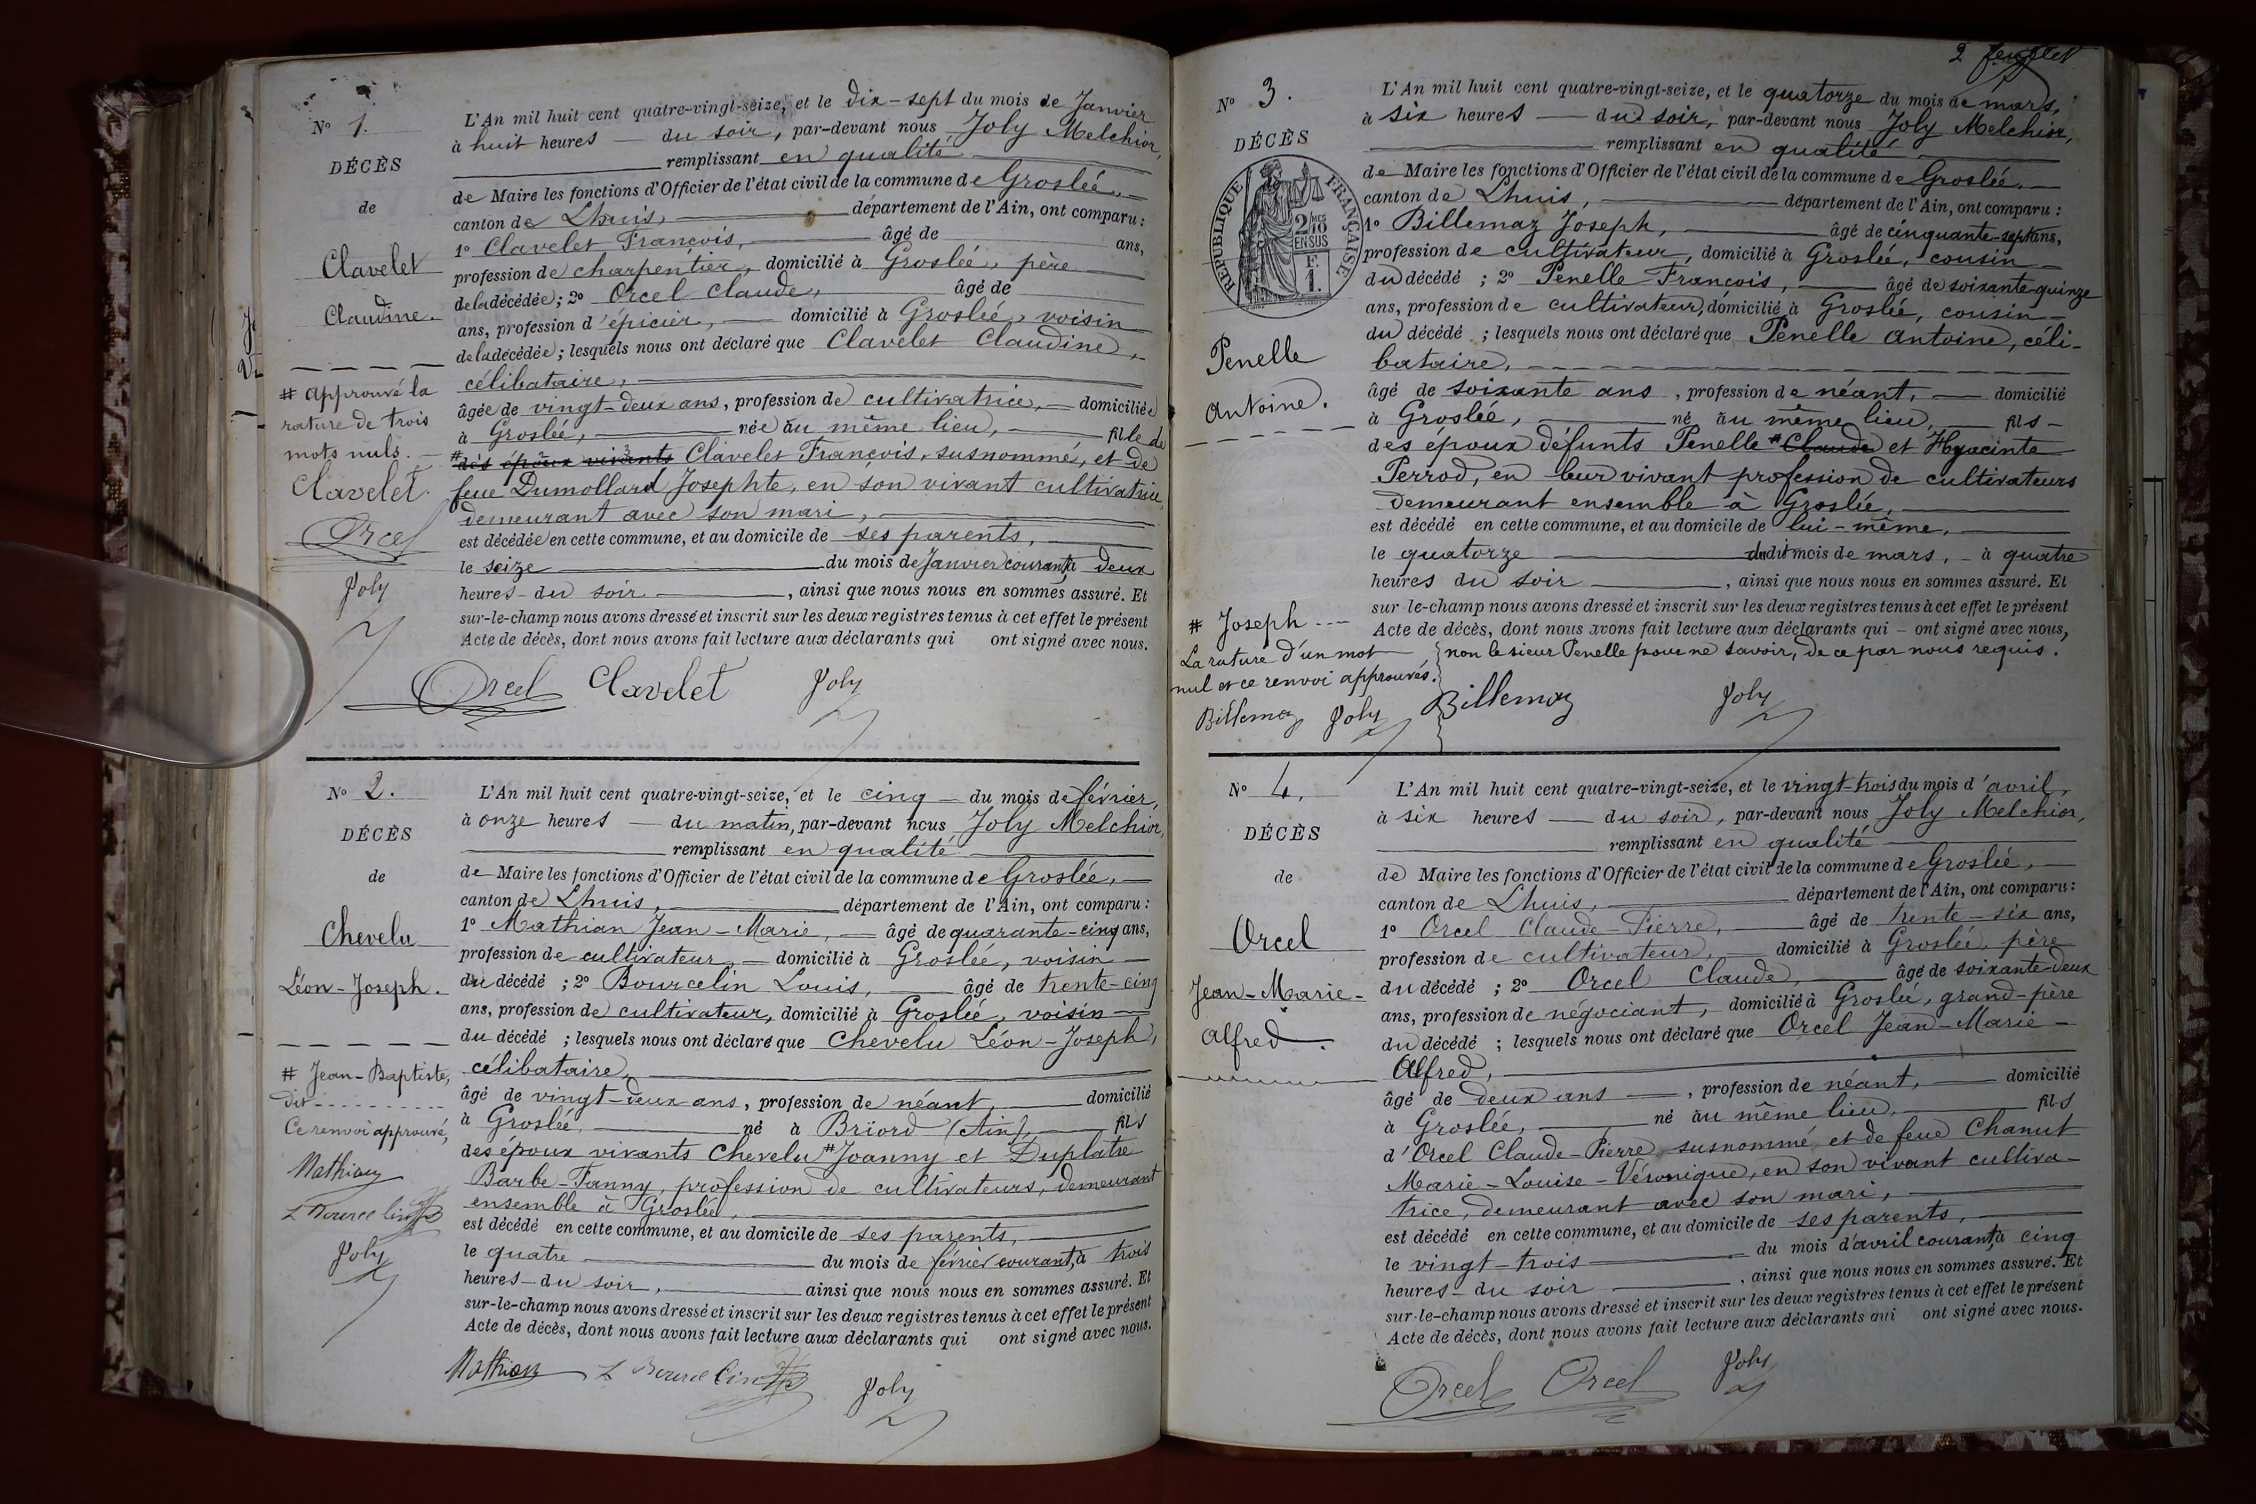 No 1.
DÉCÈS
de
Clavelet
Claudine.
# approuvé la
rature de trois
mots nuls.
Clavelet
Orcel
Joly
L'An mil huit cent quatre-vingt-seize, et le dix-sept du mois de Janvier
à huit heures du soir, par-devant nous Joly Melchior,
remplissant en qualité
de Maire les fonctions d'Officier de l'état civil de la commune de Groslée,
canton de Lhuis, département de l'Ain, ont comparu:
1o Clavelet François, âgé de ans,
profession de charpentier, domicilié à Groslée, père
de la décédée; 2o Orcel Claude, âgé de
ans, profession d'épicier, domicilié à Groslée, voisin
de la décédée; lesquels nous ont déclaré que Clavelet Claudine,
célibataire,
âgée de vingt-deux ans, profession de cultivatrice, domiciliée
à Groslée, née au même lieu, fille de
# des époux vivants Clavelet François, susnommé, et de
feue Dumollard Josephte, en son vivant cultivatrice,
demeurant avec son mari,
est décédée en cette commune, et au domicile de ses parents,
le seize du mois de Janvier courant, à deux
heures du soir, ainsi que nous nous en sommes assuré. Et
sur-le-champ nous avons dressé et inscrit sur les deux registres tenus à cet effet le présent
Acte de décès, dont nous avons fait lecture aux déclarants qui ont signé avec nous.
Orcel Clavelet Joly
No 2.
DÉCÈS
de
Chevelu
Léon-Joseph.
# Jean-Baptiste,
dit
Ce renvoi approuvé,
Mathian
L Bourcelin
Joly
L'An mil huit cent quatre-vingt-seize, et le cinq du mois de février,
à onze heures du matin, par-devant nous Joly Melchior,
remplissant en qualité
de Maire les fonctions d'Officier de l'état civil de la commune de Groslée,
canton de Lhuis, département de l'Ain, ont comparu:
1o Mathian Jean-Marie, âgé de quarante-cinq ans,
profession de cultivateur, domicilié à Groslée, voisin
du décédé; 2o Bourcelin Louis, âgé de trente-cinq
ans, profession de cultivateur, domicilié à Groslée, voisin
du décédé; lesquels nous ont déclaré que Chevelu Léon-Joseph,
célibataire,
âgé de vingt-deux ans, profession de néant, domicilié
à Groslée, né à Briord (Ain), fils
des époux vivants Chevelu # Joanny et Duplatre
Barbe-Fanny, profession de cultivateurs, demeurant
ensemble à Groslée,
est décédé en cette commune, et au domicile de ses parents,
le quatre du mois de février courant, à trois
heures du soir, ainsi que nous nous en sommes assuré. Et
sur-le-champ nous avons dressé et inscrit sur les deux registres tenus à cet effet le présent
Acte de décès, dont nous avons fait lecture aux déclarants qui ont signé avec nous.
Mathian L Bourcelin Joly
2 feuillet
No 3.
DÉCÈS
RÉPUBLIQUE FRANÇAISE
2/10 EN SUS
F. 1.
Penelle
Antoine.
# Joseph
La rature d'un mot
nul et ce renvoi approuvés.
Billemaz Joly
L'An mil huit cent quatre-vingt-seize, et le quatorze du mois de mars,
à six heures du soir, par-devant nous Joly Melchior,
remplissant en qualité
de Maire les fonctions d'Officier de l'état civil de la commune de Groslée,
canton de Lhuis, département de l'Ain, ont comparu:
1o Billemaz Joseph, âgé de cinquante-sept ans,
profession de cultivateur, domicilié à Groslée, cousin
du décédé; 2o Penelle François, âgé de soixante-quinze
ans, profession de cultivateur, domicilié à Groslée, cousin
du décédé; lesquels nous ont déclaré que Penelle Antoine, céli-
bataire,
âgé de soixante ans, profession de néant, domicilié
à Groslée, né au même lieu, fils
des époux défunts Penelle # Claude et Hyacinte
Perrod, en leur vivant profession de cultivateurs
demeurant ensemble à Groslée,
est décédé en cette commune, et au domicile de lui-même,
le quatorze dudit mois de mars, à quatre
heures du soir, ainsi que nous nous en sommes assuré. Et
sur le-champ nous avons dressé et inscrit sur les deux registres tenus à cet effet le présent
Acte de décès, dont nous avons fait lecture aux déclarants qui ont signé avec nous,
non le sieur Penelle pour ne savoir, de ce par nous requis.
Billemaz Joly
No 4.
DÉCÈS
de
Orcel
Jean-Marie-
Alfred.
L'An mil huit cent quatre-vingt-seize, et le vingt-trois du mois d'avril,
à six heures du soir, par-devant nous Joly Melchior,
remplissant en qualité
de Maire les fonctions d'Officier de l'état civil de la commune de Groslée,
canton de Lhuis, département de l'Ain, ont comparu:
1o Orcel Claude-Pierre, âgé de trente-six ans,
profession de cultivateur, domicilié à Groslée, père
du décédé; 2o Orcel Claude, âgé de soixante-deux
ans, profession de négociant, domicilié à Groslée, grand-père
du décédé; lesquels nous ont déclaré que Orcel Jean-Marie-
Alfred,
âgé de deux ans, profession de néant, domicilié
à Groslée, né au même lieu, fils
d'Orcel Claude-Pierre susnommé et de feue Chanut
Marie-Louise-Véronique, en son vivant cultiva-
trice, demeurant avec son mari,
est décédé en cette commune, et au domicile de ses parents,
le vingt-trois du mois d'avril courant, à cinq
heures du soir, ainsi que nous nous en sommes assuré. Et
sur-le-champ nous avons dressé et inscrit sur les deux registres tenus à cet effet le présent
Acte de décès, dont nous avons fait lecture aux déclarants qui ont signé avec nous.
Orcel Orcel Joly